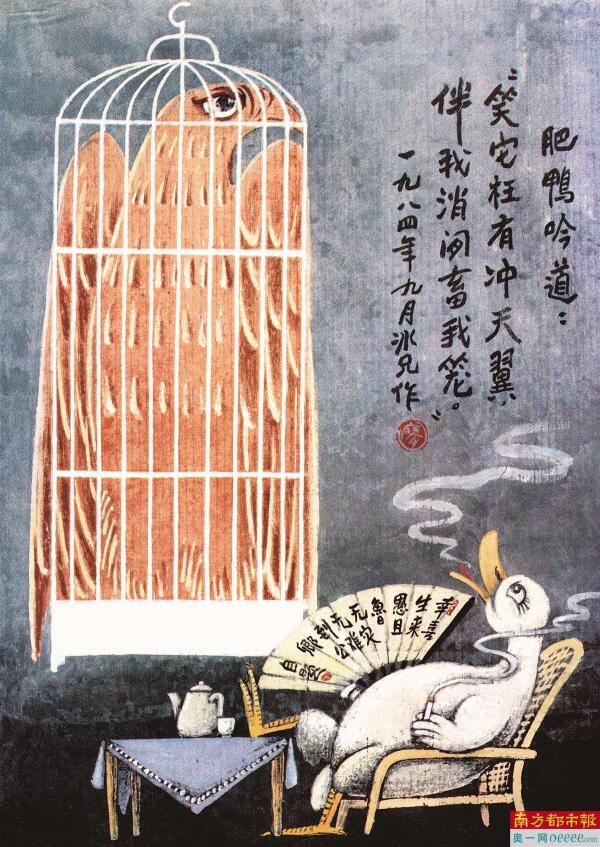 肥鸭吟道：
“笑它枉有冲天翼，
伴我消闲畜我笼。”
一九八四年九月冰兄作
幸喜
生来
愚且
鲁
无灾
无难
到公
卿
自
南方都市報
奥一网 oeeee.com